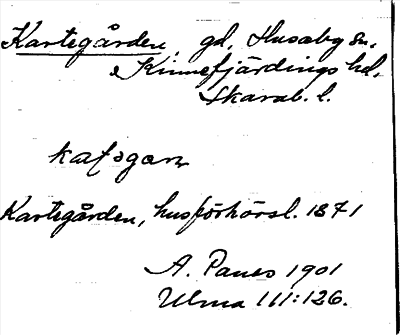 Kartegården, gd, Husaby sn,
Kinnefjärdings hd,
Skarab. l.
Kartegården, husförhörsl. 1871
A. Paues 1901
Ulma 111:126.